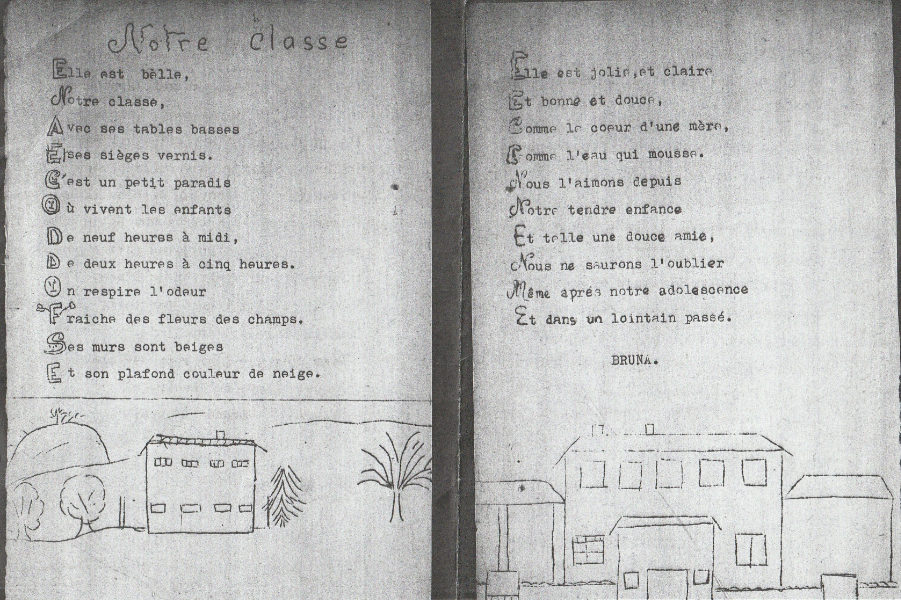 Notre classe
Elle est bèlle,
Notre classe,
Avec ses tables basses
Et ses sièges vernis.
C'est un petit paradis
Où vivent les enfants
De neuf heures à midi,
De deux heures à cinq heures.
On respire l'odeur
Fraiche des fleurs des champs.
Ses murs sont beiges
Et son plafond couleur de neige.
Elle est jolie,et claire
Et bonne et douce,
Comme le coeur d'une mère,
Comme l'eau qui mousse.
Nous l'aimons depuis
Notre tendre enfance
Et telle une douce amie,
Nous ne saurons l'oublier
Même aprés notre adolescence
Et dans un lointain passé.
BRUNA.